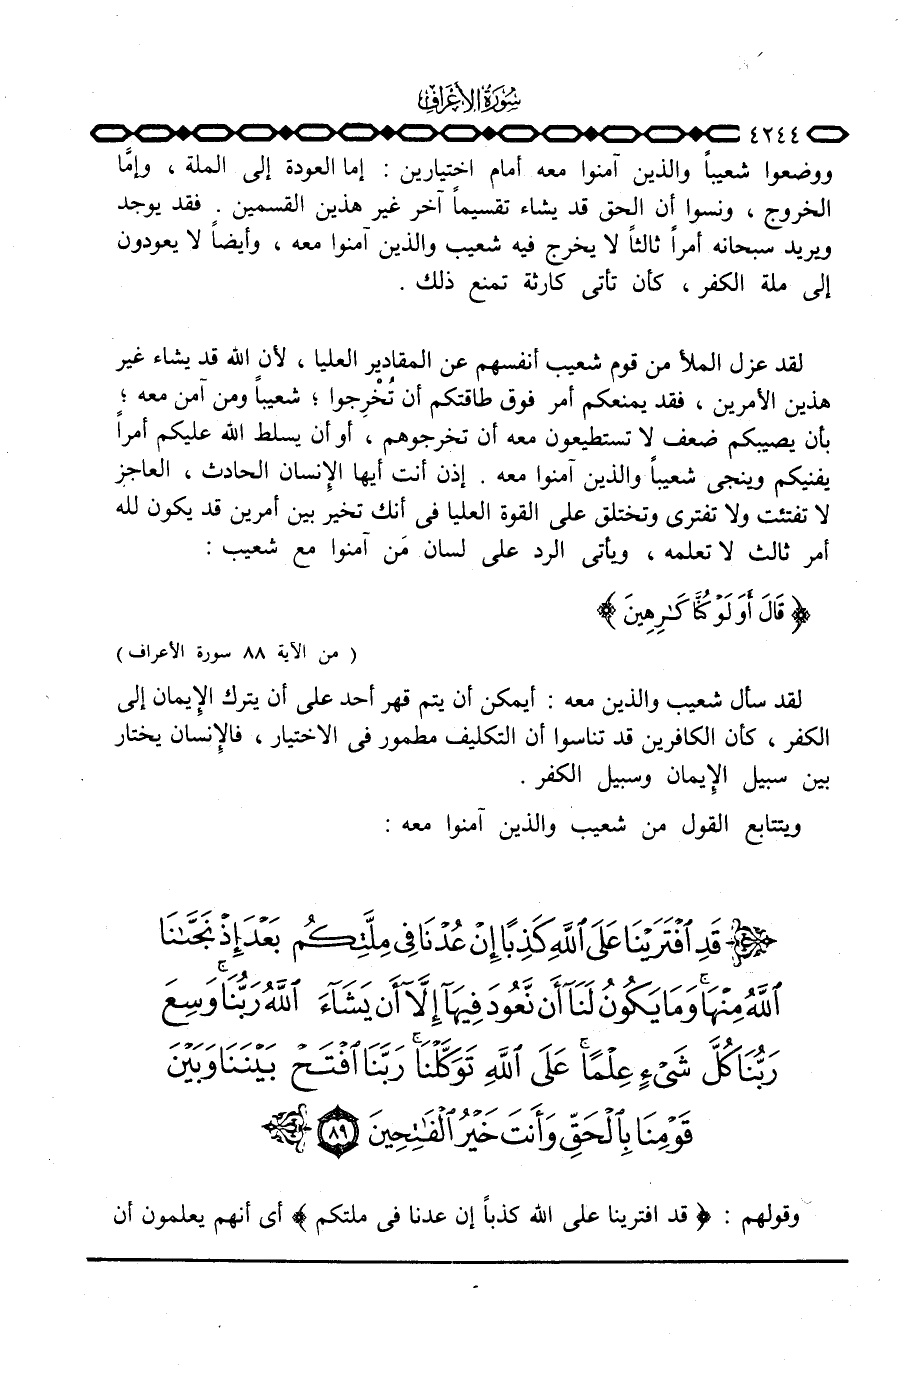 سُورَةُ الأَعْرَافِ
٤٢٤٤
ووضعوا شعيباً والذين آمنوا معه أمام اختيارين : إما العودة إلى الملة ، وإمَّا
الخروج ، ونسوا أن الحق قد يشاء تقسيماً آخر غير هذين القسمين . فقد يوجد
ويريد سبحانه أمراً ثالثاً لا يخرج فيه شعيب والذين آمنوا معه ، وأيضاً لا يعودون
إلى ملة الكفر ، كأن تأتى كارثة تمنع ذلك .
لقد عزل الملأ من قوم شعيب أنفسهم عن المقادير العليا ، لأن الله قد يشاء غير
هذين الأمرين ، فقد يمنعكم أمر فوق طاقتكم أن تُخْرِجوا ؛ شعيباً ومن آمن معه ؛
بأن يصيبكم ضعف لا تستطيعون معه أن تخرجوهم ، أو أن يسلط الله عليكم أمراً
يفنيكم وينجى شعيباً والذين آمنوا معه . إذن أنت أيها الإنسان الحادث ، العاجز
لا تفتئت ولا تفترى وتختلق على القوة العليا فى أنك تخير بين أمرين قد يكون لله
أمر ثالث لا تعلمه ، ويأتى الرد على لسان مَن آمنوا مع شعيب :
﴿ قَالَ أَوَلَوْ كُنَّا كَٰرِهِينَ ﴾
( من الآية ٨٨ سورة الأعراف )
لقد سأل شعيب والذين معه : أيمكن أن يتم قهر أحد على أن يترك الإيمان إلى
الكفر ، كأن الكافرين قد تناسوا أن التكليف مطمور فى الاختيار ، فالإنسان يختار
بين سبيل الإيمان وسبيل الكفر .
ويتتابع القول من شعيب والذين آمنوا معه :
﴿ قَدِ ٱفْتَرَيْنَا عَلَى ٱللَّهِ كَذِبًا إِنْ عُدْنَا فِى مِلَّتِكُم بَعْدَ إِذْ نَجَّىٰنَا
ٱللَّهُ مِنْهَا ۚ وَمَا يَكُونُ لَنَآ أَن نَّعُودَ فِيهَآ إِلَّآ أَن يَشَآءَ ٱللَّهُ رَبُّنَا ۚ وَسِعَ
رَبُّنَا كُلَّ شَىْءٍ عِلْمًا ۚ عَلَى ٱللَّهِ تَوَكَّلْنَا ۚ رَبَّنَا ٱفْتَحْ بَيْنَنَا وَبَيْنَ
قَوْمِنَا بِٱلْحَقِّ وَأَنتَ خَيْرُ ٱلْفَٰتِحِينَ ٨٩ ﴾
وقولهم : ﴿ قد افترينا على الله كذباً إن عدنا فى ملتكم ﴾ أى أنهم يعلمون أن